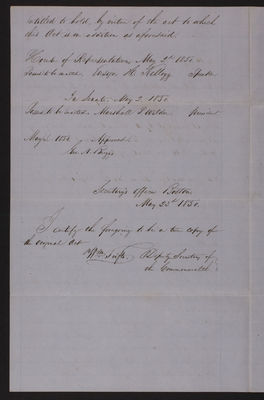 entitled to hold, by virtue of the act to which
this Act is in addition as aforesaid.
House of Representatives, May 2d 1850.
Passed to be enacted. Ensign H. Kellogg Speaker
In Senate, May 2, 1850.
Passed to be enacted. Marshall P. Wilder President
May 1850 Approved
Geo. N. Briggs
Secretary's Office Boston
May 23d 1850.
I certify the foregoing to be a true copy of
the original Act
Wm Tufts, Deputy Secretary of
the Commonwealth.